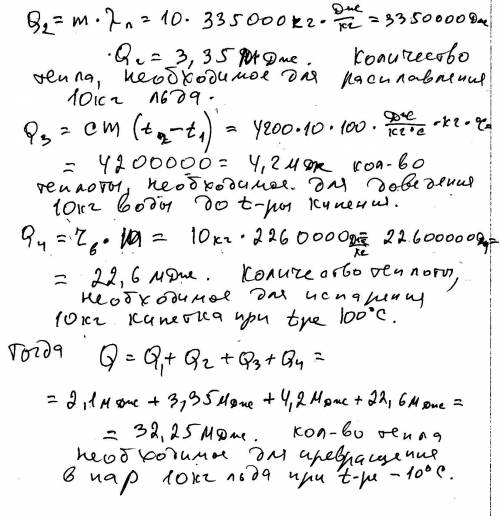 Q₂ = m · λл = 10 · 335000 кг · Дж/кг = 3350000 Дж
Q₂ = 3,35 МДж. Количество
тепла, необходимое для расплавления
10кг льда.
Q₃ = cm (t₂ - t₁) = 4200·10·100 · Дж/кг°с · кг · °с
= 4200000 = 4,2 МДж кол-во
теплоты, необходимое для доведения
10кг воды до t-ры кипения.
Q₄ = rв · m = 10кг · 2260000 Дж/кг = 22600000 Дж =
= 22,6 мДж. Количество теплоты,
необходимое для испарения
10кг кипетка при t-ре 100°С.
Тогда Q = Q₁ + Q₂ + Q₃ + Q₄ =
= 2,1мДж + 3,35мДж + 4,2мДж + 22,6мДж =
= 32,25мДж. кол-во тепла
необходимое для превращения
в пар 10кг льда при t-ре -10°С.